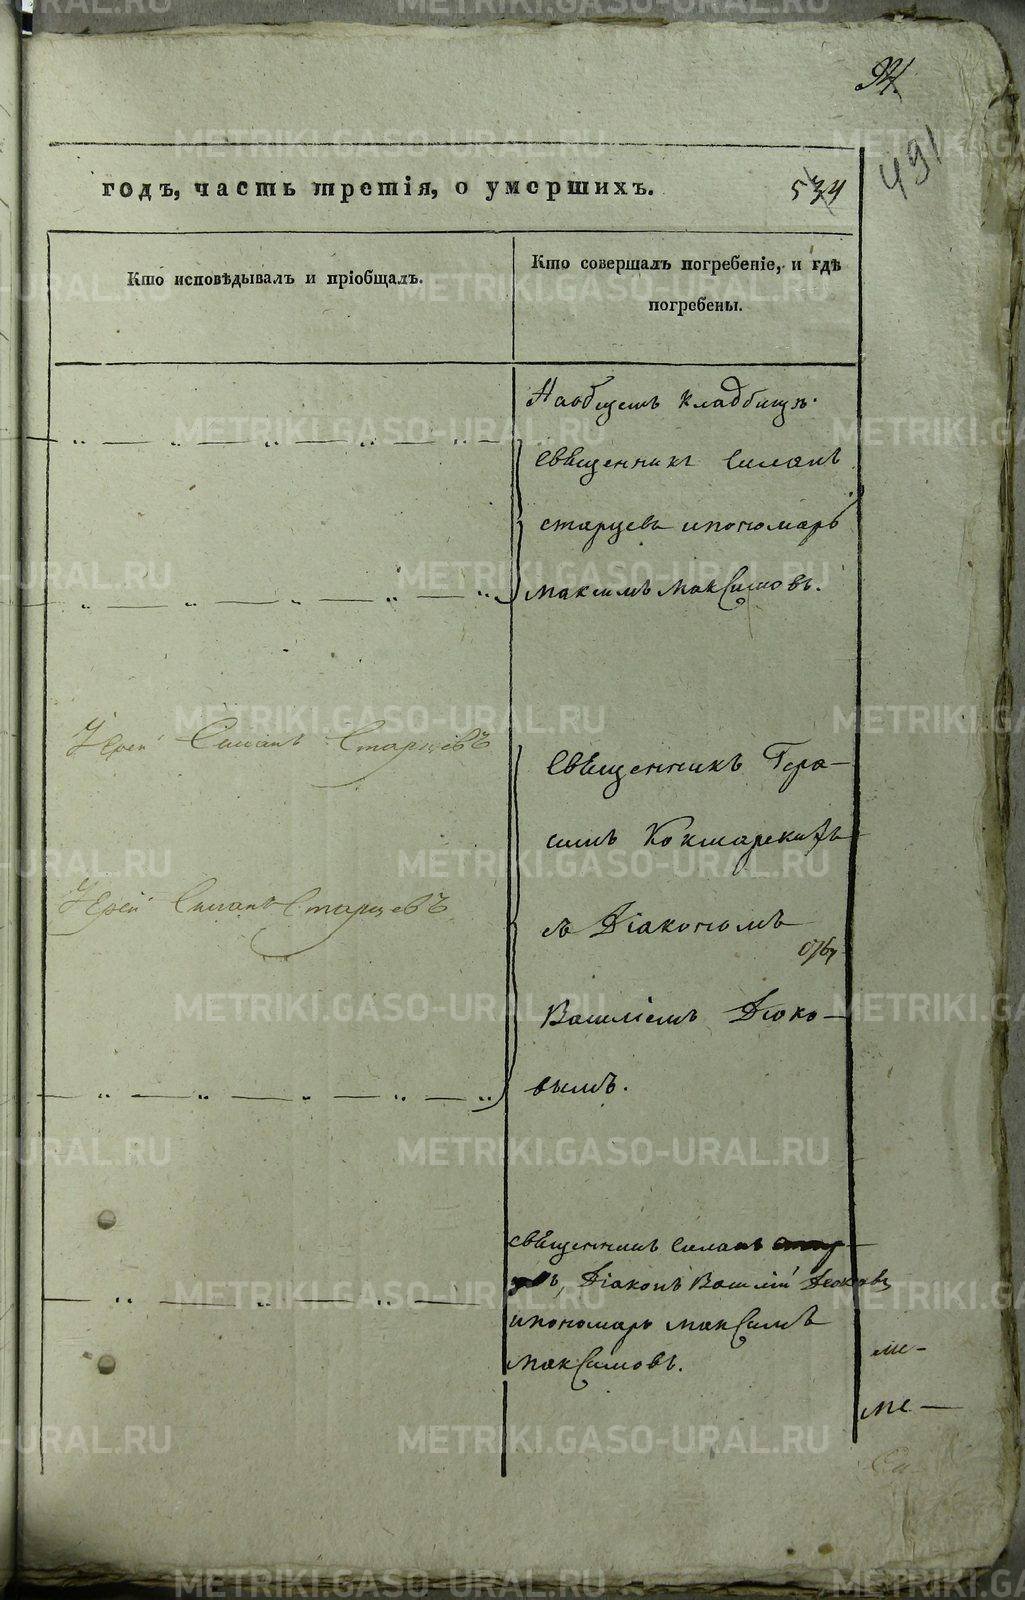 491
годъ, часть третія, о умершихъ.
534
Кто исповѣдывалъ и пріобщалъ.
Кто совершалъ погребеніе, и гдѣ
погребены.
На общемъ кладбищѣ.
Священникъ Симеонъ
старцевъ и пономарь
максимъ максимовъ.
Іерей Симеонъ Старцевъ
Священникъ Гера-
симъ Кокшарскихъ
Іерей Симеонъ Старцевъ
съ Діакономъ
Василіемъ Дюко-
вымъ.
священникъ Симеонъ
Діаконъ Василій Дюковъ
и пономарь максимъ
максимовъ.
ме-
ме-
METRIKI.GASO-URAL.RU